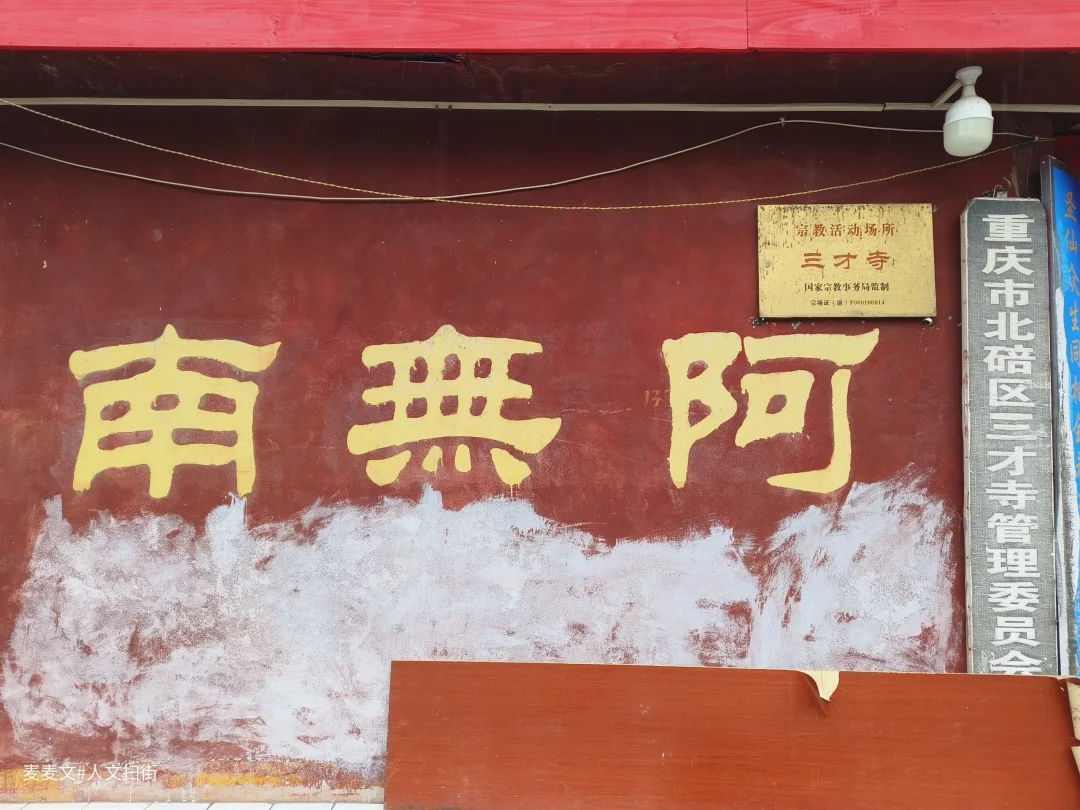 宗教活动场所
三才寺
国家宗教事务局监制
宗场证（渝）F090180014
南無阿
重庆市北碚区三才寺管理委员会
圣仙众生同
麦麦文#人文扫街